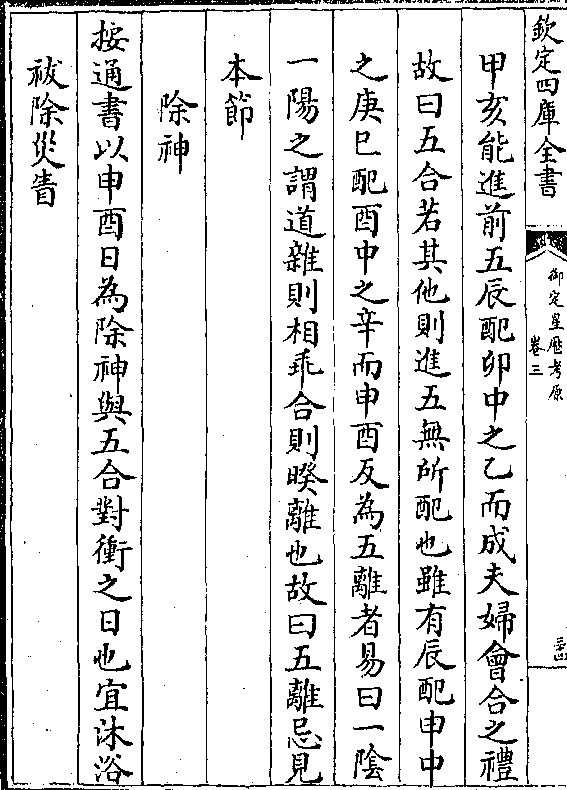 欽定四庫全書
御定星歷考原
卷三
甲亥能進前五辰配卯中之乙而成夫婦會合之禮
故曰五合若其他則進五無所配也雖有辰配申中
之庚巳配酉中之辛而申酉反為五離者易曰一陰
一陽之謂道雜則相乖合則暌離也故曰五離忌見
本節
除神
按通書以申酉日為除神與五合對衝之日也宜沐浴
祓除災眚